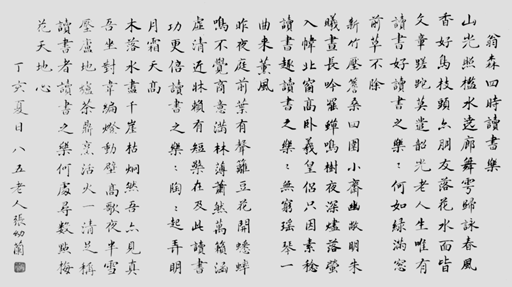 翁森四時讀書樂
山光照檻水遶廊舞雩歸詠春風
香好鳥枝頭亦朋友落花水面皆
文章蹉跎莫遣韶光老人生唯有
讀書好讀書之樂：何如綠滿窗
前草不除
新竹壓簷桑四圍小齋幽敞明朱
曦晝長吟罷蟬鳴樹夜深燼落螢
入幃北窗高卧羲皇侶只因素稔
讀書趣讀書之樂：無窮瑤琴一
曲來薰風
昨夜庭前葉有聲籬豆花開蟋蟀
鳴不覺商意滿林薄蕭然萬籟涵
虛清近牀賴有短檠在及此讀書
功更倍讀書之樂：陶：起弄明
月霜天高
木落水盡千崖枯炯然吾亦見真
吾坐對韋編燈動壁高歌夜半雪
壓廬地爐茶鼎烹活火一清足稱
讀書者讀書之樂何處尋數點梅
花天地心
丁亥夏日八五老人張幼蘭